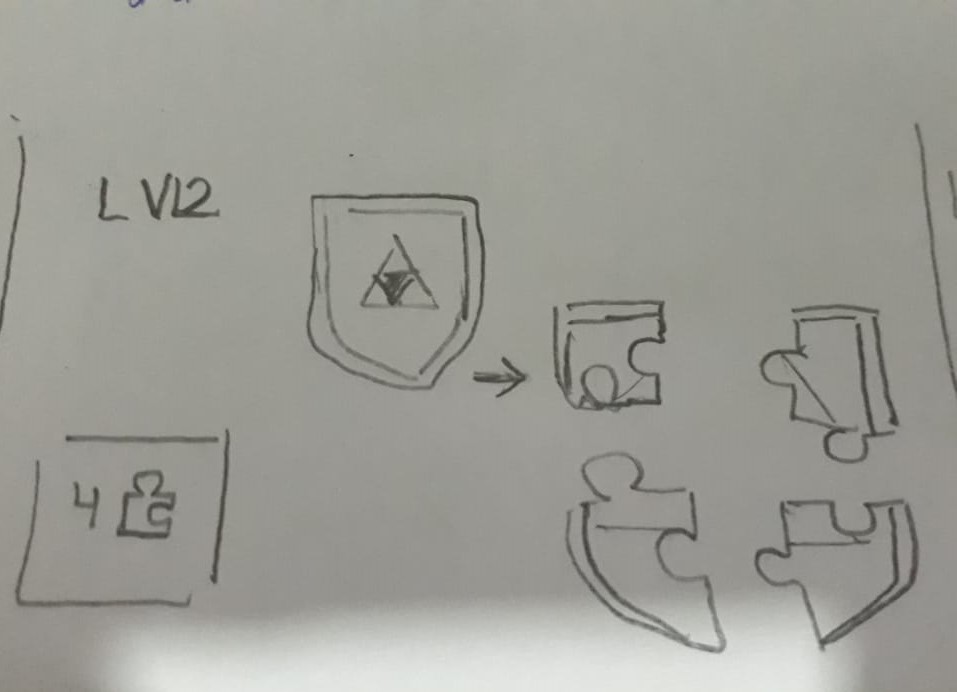 LVL2
4